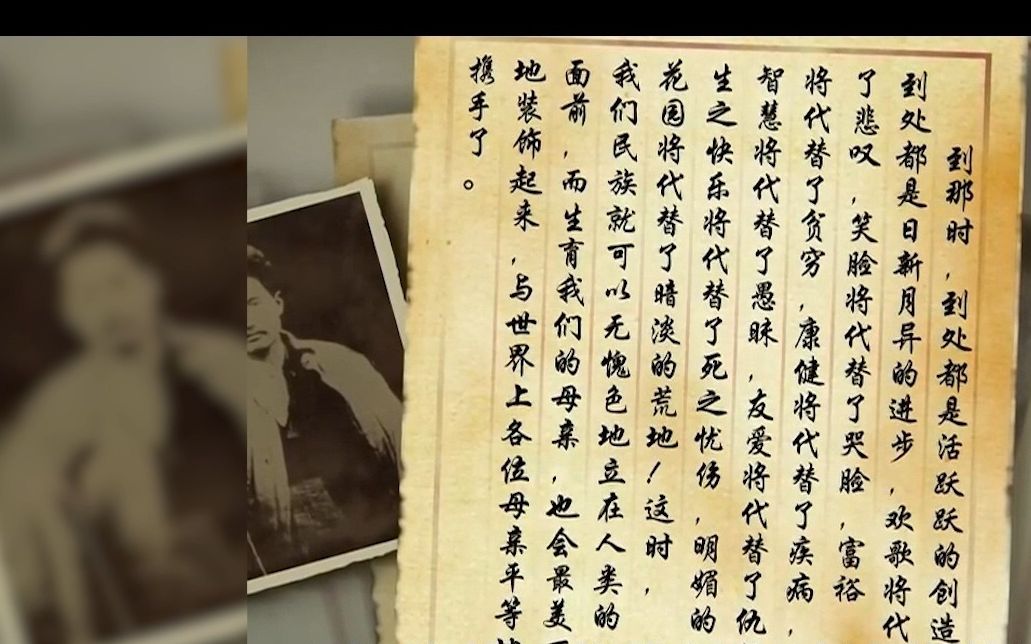 到那时，到处都是活跃跃的创造
到处都是日新月异的进步，欢歌将代
了悲叹，笑脸将代替了哭脸，富裕
将代替了贫穷，康健将代替了疾病，
智慧将代替了愚昧，友爱将代替了仇
生之快乐将代替了死之忧伤，明媚的
花园将代替了暗淡的荒地！这时，
我们民族就可以无愧色地立在人类的
面前，而生育我们的母亲，也会最美
地装饰起来，与世界上各位母亲平等
携手了。